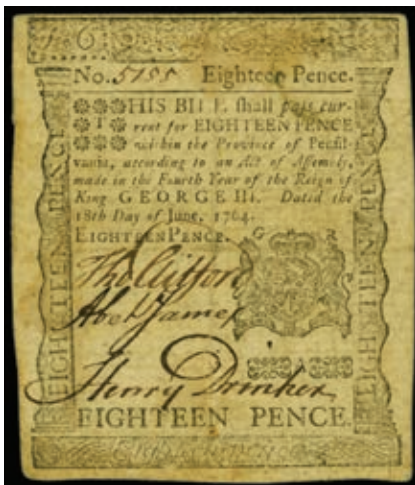 No. 5155 Eighteen Pence.
THIS BILL shall pass cur-
rent for EIGHTEEN PENCE
within the Province of Pennsil-
vania, according to an Act of Assembly,
made in the Fourth Year of the Reign of
King GEORGE III. Dated the
18th Day of June, 1764.
EIGHTEEN PENCE. G R
Tho Clifton
Abel James
Henry Drinker
A
EIGHTEEN PENCE.
EIGHTEEN PENCE
EIGHTEEN PENCE